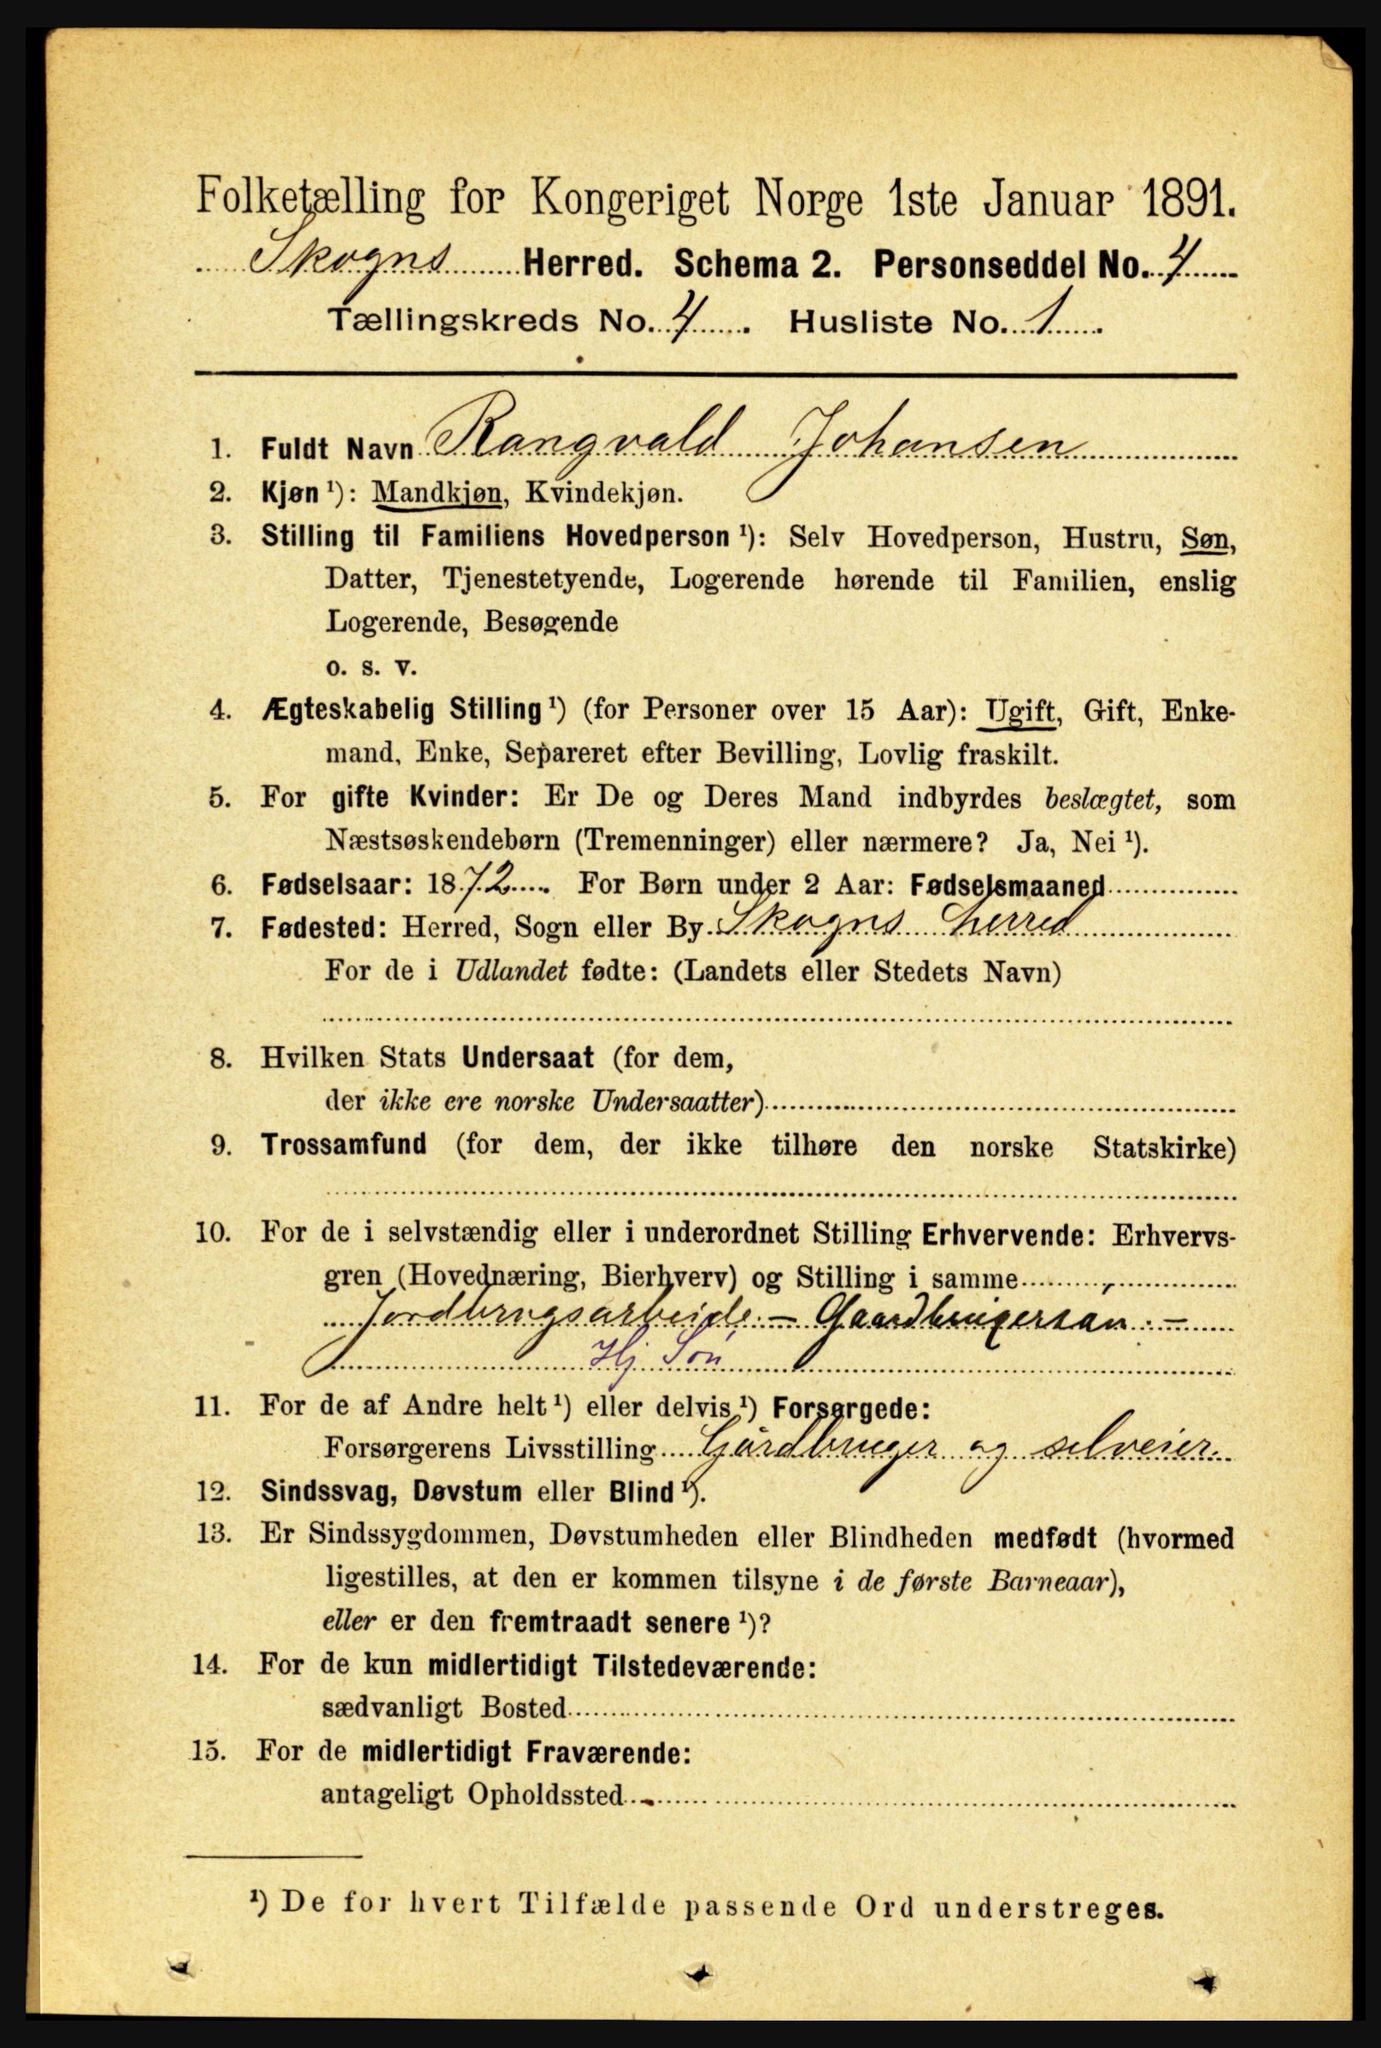 Folketælling for Kongeriget Norge 1ste Januar 1891.
Skogns Herred. Schema 2. Personseddel No. 4
Tællingskreds No. 4. Husliste No. 1.
1. Fuldt Navn Rangvald Johansen
2. Kjøn ¹): Mandkjøn, Kvindekjøn.
3. Stilling til Familiens Hovedperson ¹): Selv Hovedperson, Hustru, Søn,
Datter, Tjenestetyende, Logerende hørende til Familien, enslig
Logerende, Besøgende
o. s. v.
4. Ægteskabelig Stilling ¹) (for Personer over 15 Aar): Ugift, Gift, Enke-
mand, Enke, Separeret efter Bevilling, Lovlig fraskilt.
5. For gifte Kvinder: Er De og Deres Mand indbyrdes beslægtet, som
Næstsøskendebørn (Tremenninger) eller nærmere? Ja, Nei ¹).
6. Fødselsaar: 1872. For Børn under 2 Aar: Fødselsmaaned
7. Fødested: Herred, Sogn eller By Skogns herred
For de i Udlandet fødte: (Landets eller Stedets Navn)
8. Hvilken Stats Undersaat (for dem,
der ikke ere norske Undersaatter)
9. Trossamfund (for dem, der ikke tilhøre den norske Statskirke)
10. For de i selvstændig eller i underordnet Stilling Erhvervende: Erhvervs-
gren (Hovednæring, Bierhverv) og Stilling i samme
Jordbrugsarbeide – Gaardbrugersøn. –
Hj Søn
11. For de af Andre helt ¹) eller delvis ¹) Forsørgede:
Forsørgerens Livsstilling Gårdbruger og selveier.
12. Sindssvag, Døvstum eller Blind ¹).
13. Er Sindssygdommen, Døvstumheden eller Blindheden medfødt (hvormed
ligestilles, at den er kommen tilsyne i de første Barneaar),
eller er den fremtraadt senere ¹)?
14. For de kun midlertidigt Tilstedeværende:
sædvanligt Bosted
15. For de midlertidigt Fraværende:
antageligt Opholdssted
¹) De for hvert Tilfælde passende Ord understreges.